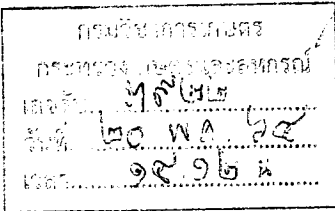 กรมวิชาการเกษตร
กระทรวงเกษตรและสหกรณ์
เลขรับ
วันที่ ๒๐ พค. ๖๔
เวลา ๑๕.๑๒ น